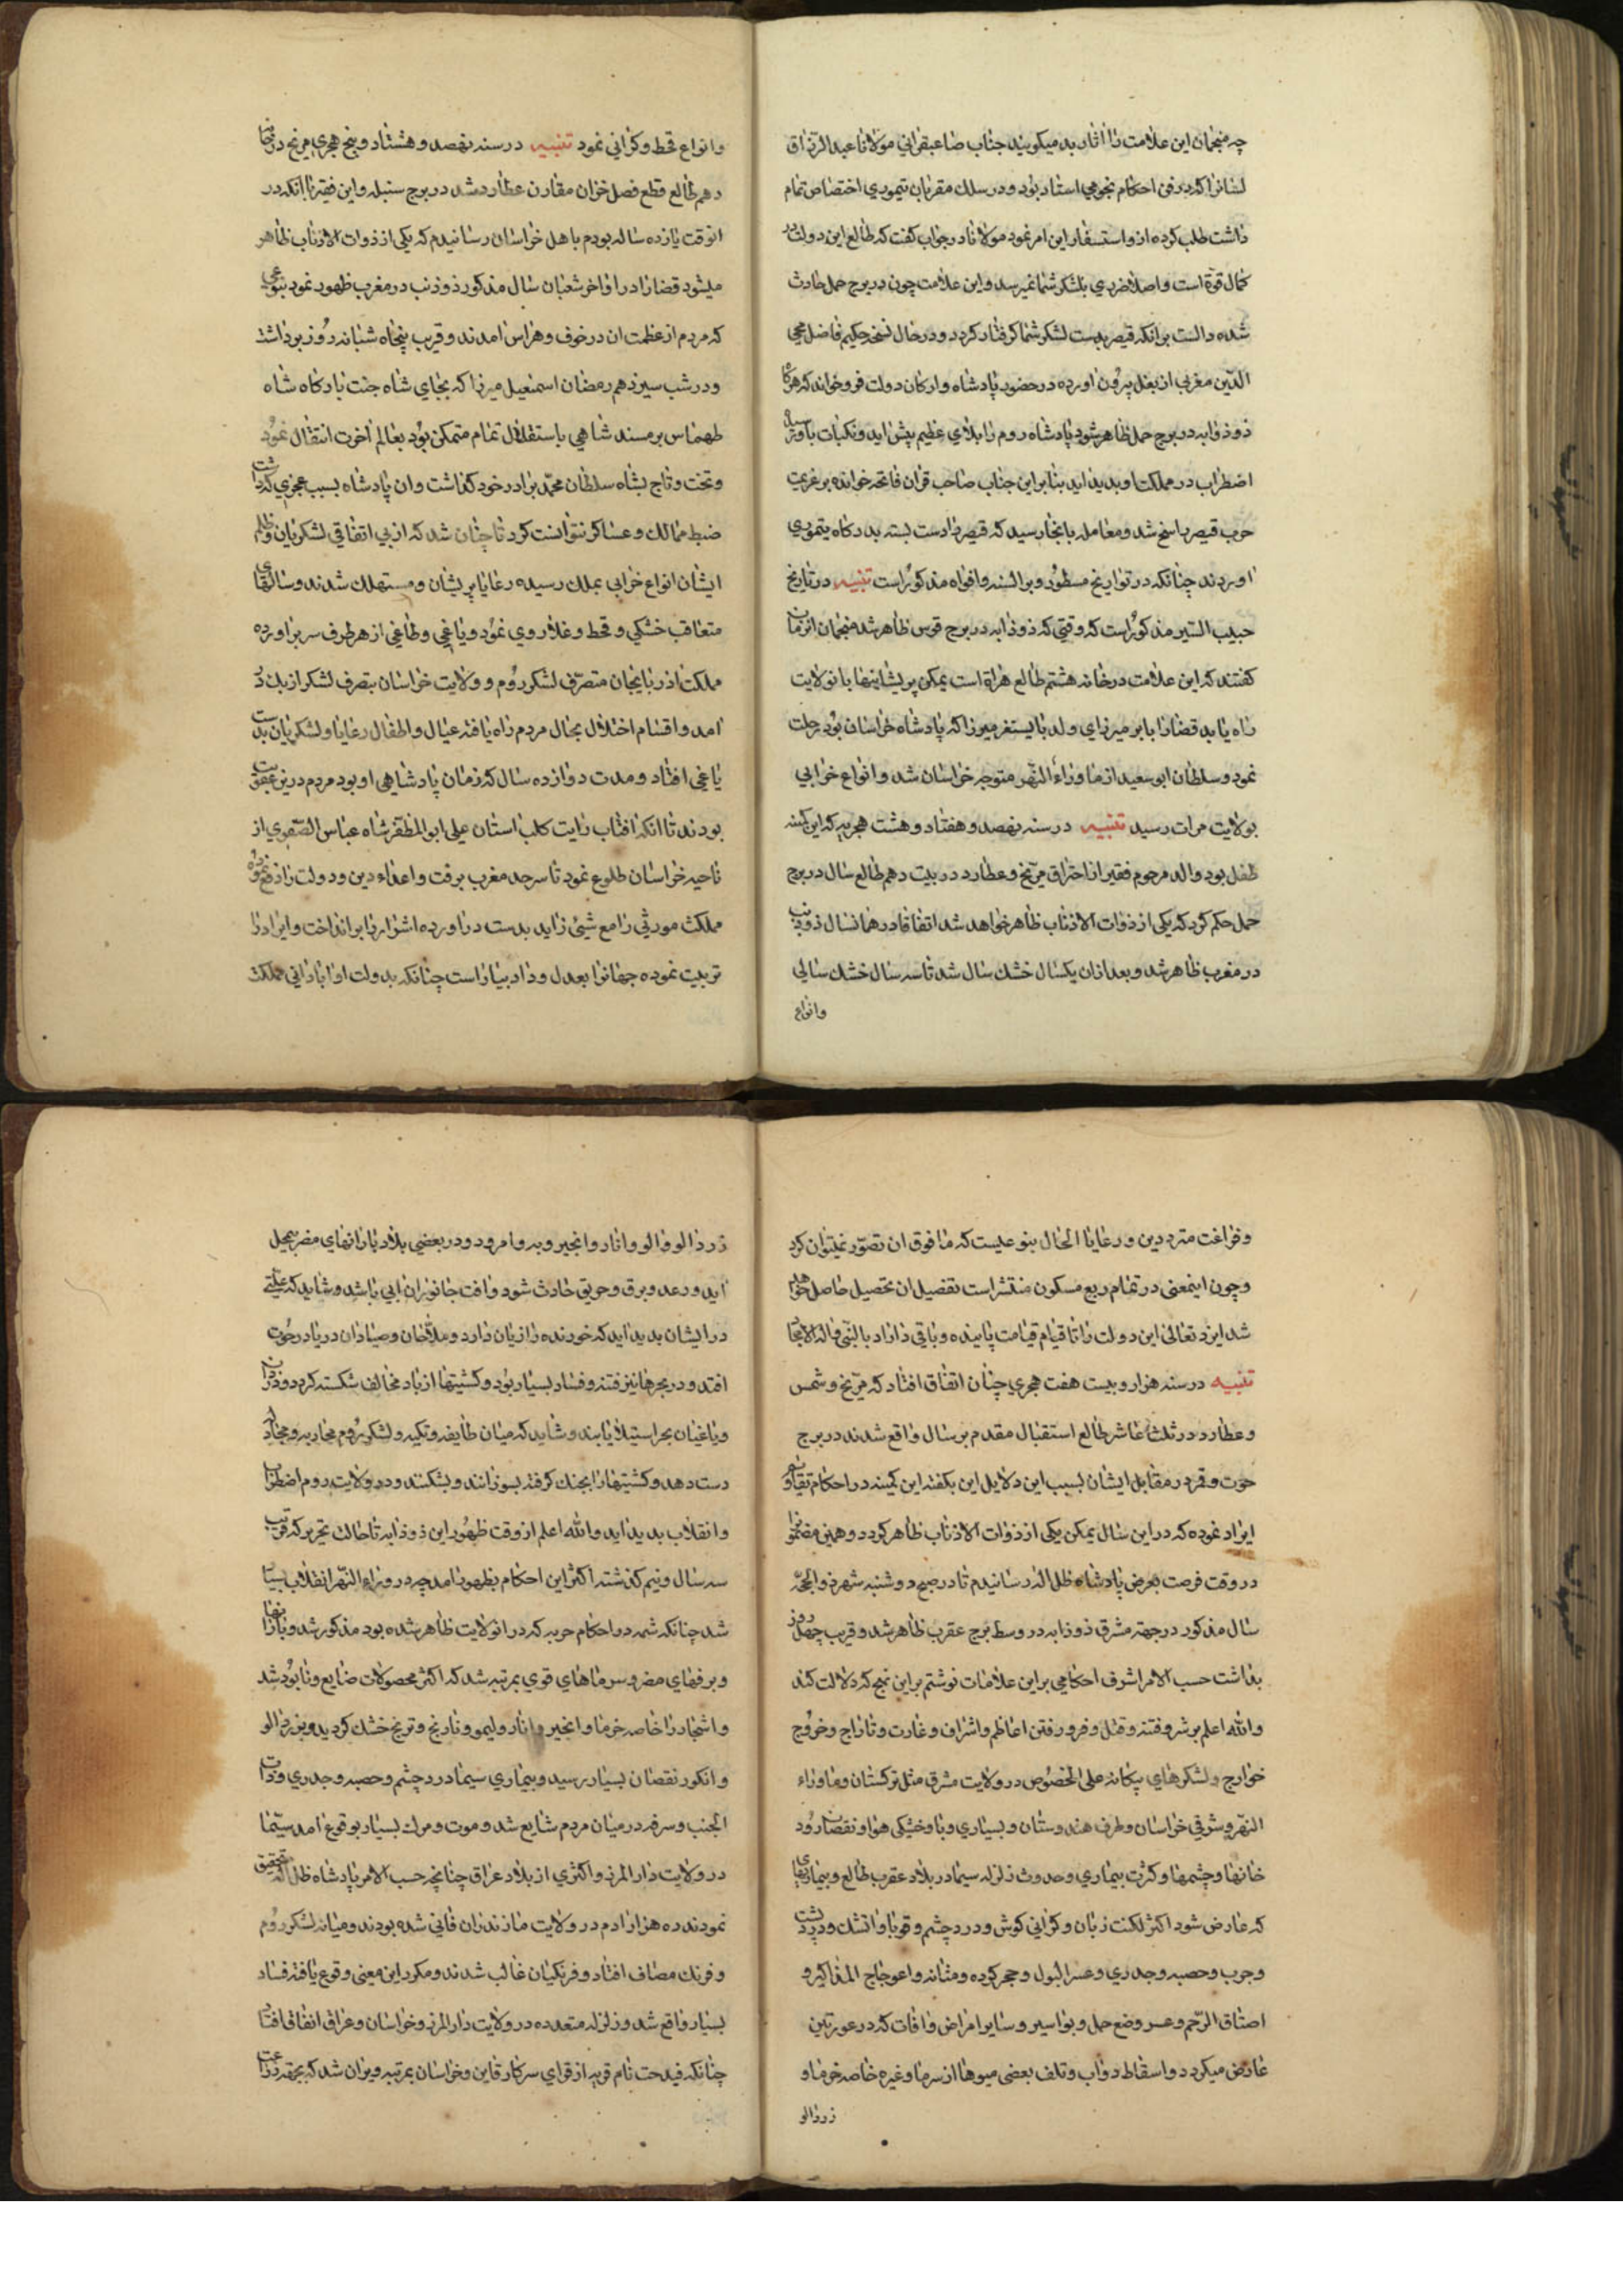 چه منجمان این علامت را اثار بد میکویند جناب صاحبقرانی مولانا عبد الرزاق
لسانرا که در فن احکام نجومی استاد بود و در سلك مقربان تیموری اختصاص تمام
داشت طلب کرده ازو استسفار این امر نمود مولانا در جواب کفت که طالع این دولت در
کمال قوة است و اصلا ضرری بلشکر شما نمیرسد و این علامت چون در برج حمل حادث
شده دالست برانکه قیصر بدست لشکر شما کرفتار کردد و در حال نسخه حکیم فاضل محی
الدین مغربی از بغل بیرون اورده در حضور پادشاه و ارکان دولت فرو خواند که هرکا
ذو ذوابه در برج حمل ظاهر شود پادشاه روم را بلای عظیم پیش اید و نکبات باو رسد
اضطراب در مملکت او پدید اید بنابر این جناب صاحب قران فاتحه خوانده بر عزیمت
حرب قیصر راسخ شد و معامله بانجا رسید که قیصر را دست بسته بدرکاه تیموری
اوردند چنانکه در تواریخ مسطور و بر السنه و افواه مذکور است تنبیه در تاریخ
حبیب السیر مذکور است که وقتی که ذو ذوابه در برج قوس ظاهر شد منجمان انزمان
کفتند که این علامت در خانه هشتم طالع هراة است یمکن پریشانیها بانولایت
راه یابد قضا را بابر میرزای ولد بایستغر میرزا که پادشاه خراسان بود رحلت
نمود و سلطان ابو سعید از ماوراء النهر متوجه خراسان شد و انواع خرابی
بولایت هرات رسید تنبیه در سنه نهصد و هفتاد و هشت هجریه که این کمینه
طفل بود والد مرحوم فقیر از احتراق مریخ و عطارد در بیت دهم طالع سال در برج
حمل حکم کرد که یکی از ذوات الاذناب ظاهر خواهد شد اتفاقا در همانسال ذو ذنب
در مغرب ظاهر شد و بعد ازان یکسال خشك سال شد تا سه سال خشك سالی
وانواع
وانواع قحط و کرانی نمود تنبیه در سنه نهصد و هشتاد و پنج هجری مریخ در خانه
دهم طالع قطع فصل خزان مقارن عطارد شد در برج سنبله و این فقیر با انکه در
انوقت یازده ساله بودم باهل خراسان رسانیدم که یکی از ذوات الاذناب ظاهر
میشود قضا را در اواخر شعبان سال مذکور ذو ذنب در مغرب ظهور نمود بنوعی
که مردم از عظمت ان در خوف و هراس امدند و قریب پنجاه شبانه روز بوداشت
و در شب سیزدهم رمضان اسمعیل میرزا که بجای شاه جنت بارکاه شاه
طهماس بر مسند شاهی باستقلال تمام متمکن بود بعالم اخرت انتقال نمود
و تخت و تاج بشاه سلطان محمد برادر خود کذاشت و ان پادشاه بسبب عجزی که داشت
ضبط ممالك و عساکر نتوانست کرد تا چنان شد که از بی اتفاقی لشکریان و ظلم
ایشان انواع خرابی بملك رسیده رعایا پریشان و مستهلك شدند و سالهای
متعاقب خشکی و قحط و غلا روی نمود و یاغی و طاغی از هر طرف سر براورده
مملکت اذربایجان متصرف لشکر روم و ولایت خراسان بتصرف لشکر ازبك در
امد و اقسام اختلال بحال مردم راه یافته عیال و اطفال رعایا و لشکریان بدست
یاغی افتاد و مدت دوازده سال که زمان پادشاهی او بود مردم درین عقوبت
بودند تا انکه افتاب رایت کلب استان علی ابو المظفر شاه عباس الصفوی از
ناحیه خراسان طلوع نمود تا سرحد مغرب برفت و اعداء دین و دولت را دفع نموده
مملکت موروثی را مع شیئ زاید بدست دراورده اشرار را بر انداخت و ابرار را
تربیت نموده جهانرا بعدل و داد بیاراست چنانکه بدولت او ابادانی مملکت
و فراغت مترددین و رعایا الحال بنوعیست که مافوق ان تصور نمیتوان کرد
و چون اینمعنی در تمام ربع مسکون منتشر است تفصیل ان تحصیل حاصل خواهد
شد ایزد تعالی این دولت را تا قیام قیامت پاینده و باقی داراد بالنبی و اله الامجاد
تنبیه در سنه هزار و بیست هفت هجری چنان اتفاق افتاد که مریخ و شمس
و عطارد در ثلث عاشر طالع استقبال مقدم بر سال واقع شدند در برج
حوت و قمر در مقابل ایشان بسبب این دلایل این بکفته این کمینه در احکام تقاویم
ایراد نموده که در این سال یمکن یکی از ذوات الاذناب ظاهر کردد و همین مضمونرا
در وقت فرصت بعرض پادشاه ظل اله رسانیدم تا در صبح دوشنبه شهر ذو الحجه
سال مذکور در جهة مشرق ذو ذوابه در وسط برج عقرب ظاهر شد و قریب چهل روز
بداشت حسب الامر اشرف احکامی بر این علامات نوشتم بر این نهج که دلالت کند
والله اعلم بر شر و فتنه و قتل و فرو رفتن اعاظم و اشراف و غارت و تاراج و خروج
خوارج و لشکرهای بیکانه علی الخصوص در ولایت مشرق مثل ترکستان و ماوراء
النهر و شرقی خراسان و طرف هندوستان و بسیاری وبا و خشکی هوا و نقصان رود
خانها و چشمها و کثرت بیماری و حدوث زلزله سیما در بلاد عقرب طالع و بیماریهای
که عارض شود اکثر لکنت زبان و کرانی کوش و درد چشم و قوبا و اتشك و درد پشت
و جرب و حصبه و جدری و عسر البول و حجر کرده و مثانه و اعوجاج المذاکیر و
اصتاق الرحم و عسر وضع حمل و بواسیر و سایر امراض و افات که در عورتین
عارض میکردد و اسقاط دواب و تلف بعضی میوها از سرما و غیره خاصه خرما و
زردالو
زردالو و الو و انار و انجیر و به و امرود و در بعضی بلاد بارانهای مضر بمحل
اید و رعد و برق و حریق حادث شود و افت جانوران ابی باشد و شاید که علتی
در ایشان پدید اید که خورنده را زیان دارد و ملاحان و صیادان دریا در خوف
افتد و در بحرها نیز فتنه و فساد بسیار بود و کشتیها از باد مخالف شکسته کردد و دزدان
و یاغیان بحر استیلا یابند و شاید که میان طایفه و تکیه و لشکر روم محاربه و مجادله
دست دهد و کشتیها را بجنك کرفته بسوزانند و بشکنند و در ولایت روم اضطراب
و انقلاب پدید اید والله اعلم از وقت ظهور این ذو ذوابه تا حالت تحریر که قریب
سه سال و نیم کذشته اکثر این احکام بظهور امد چه در وراء النهر انقلاب بسیار
شد چنانکه شمه در احکام حربه که در انولایت ظاهر شده بود مذکور شد و بارانها
و برفهای مضر و سرماهای قوی بمرتبه شد که اکثر محصولات ضایع و نابود شد
و اشجار را خاصه خرما و انجیر و انار و لیمو و نارنج و ترنج خشك کردید و بزردالو
و انکور نقصان بسیار رسید و بیماری سیما درد چشم و حصبه و جدری و ذات
الجنب و سرفه در میان مردم شایع شد و موت و مرك بسیار بوقوع امد سیما
در ولایت دار المرز و اکثری از بلاد عراق چنانچه حسب الامر پادشاه ظل اله تحقیق
نمودند ده هزار ادم در ولایت مازندران فانی شده بودند و میانه لشکر روم
و فرنك مصاف افتاد و فرنکیان غالب شدند و مکرر این معنی وقوع یافته فساد
بسیار واقع شد و زلزله متعدده در ولایت دار المرز و خراسان و عراق اتفاق افتاد
چنانکه فیدحت نام قریه از قرای سرکار قاین و خراسان بمرتبه ویران شد که